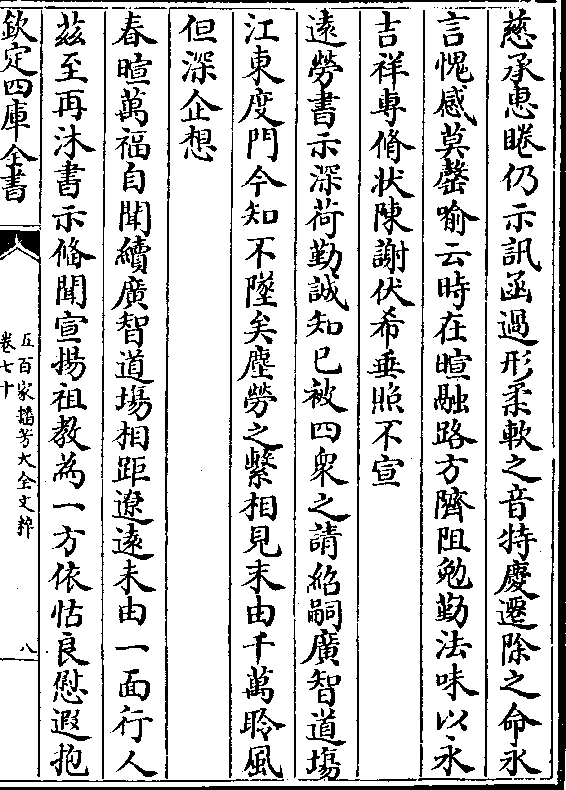 慈承惠睠仍示訊函過形柔軟之音特慶遷除之命永
言愧感莫罄喻云時在暄融路方隮阻勉勤法味以永
吉祥專脩状陳謝伏希垂照不宣
遠勞書示深荷勤誠知已被四衆之請紹嗣廣智道塲
江東度門今知不墜矣塵勞之縶相見末由千萬聆風
但深企想
春暄萬福自聞續廣智道塲相距遼遠未由一面行人
茲至再沐書示備聞宣揚祖教為一方依怙良慰遐抱
欽定四庫全書
五百家播芳大全文粹
卷七十
八